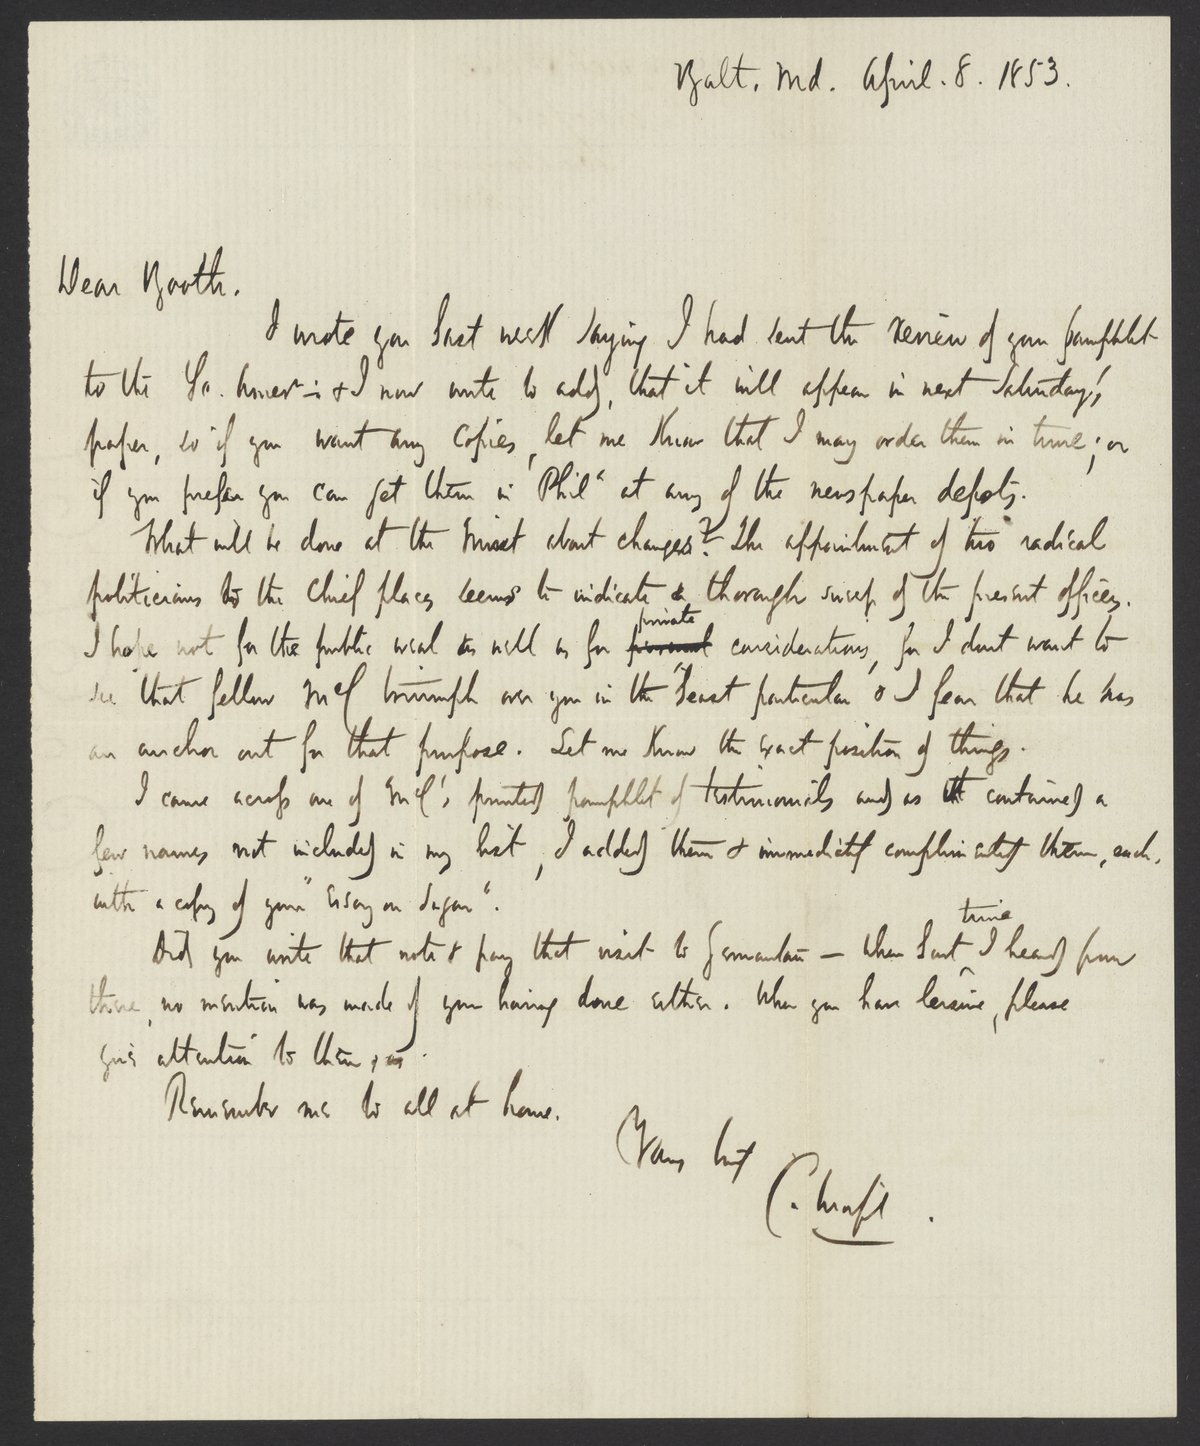 Balt. Md. April. 8. 1853.
Dear Booth.
I wrote you last week saying I had sent the review of your pamphlet
to the Sc. Amer-n & I now write to add, that it will appear in next Saturday's
paper, so if you want any copies, let me know that I may order them in time; or
if you prefer you can get them in Phila at any of the newspaper depots.
What will be done at the Mint about changes? The appointment of two radical
politicians to the chief places seems to indicate a thorough sweep of the present officers.
I hope not for the public weal as well as for private considerations, for I dont want to
see that fellow McC triumph over you in the least particular & I fear that he has
an anchor out for that purpose. Let me know the exact position of things.
I came across one of McC's printed pamphlet of testimonials and as it contained a
few names not included in my list, I added them & immediately complimented them, each,
with a copy of your "Essay on Sugar".
Did you write that note & pay that visit to Germantown — When last time I heard from
there, no mention was made of your having done either. When you have leisure, please
give attention to them
Remember me to all at home.
Yours truly
C. Morfit.